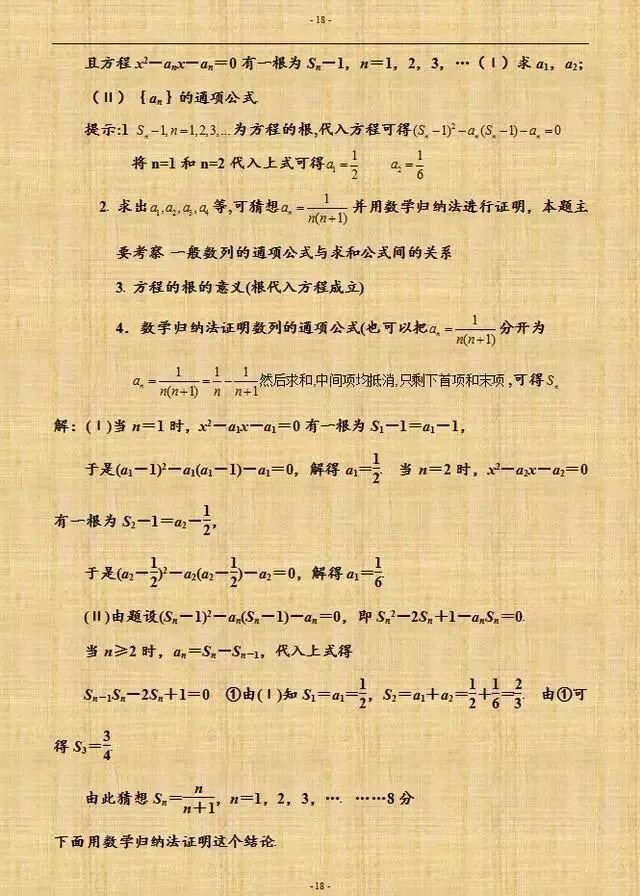 - 18 -
且方程 x²－aₙx－aₙ＝0 有一根为 Sₙ－1，n＝1，2，3，…（Ⅰ）求 a₁，a₂；
（Ⅱ）｛aₙ｝的通项公式.
提示:1 Sₙ－1,n＝1,2,3,...为方程的根,代入方程可得(Sₙ－1)²－aₙ(Sₙ－1)－aₙ＝0
将 n=1 和 n=2 代入上式可得a₁＝1/2 a₂＝1/6
2. 求出a₁,a₂,a₃,a₄等,可猜想aₙ＝1/n(n+1) 并用数学归纳法进行证明，本题主
要考察 一般数列的通项公式与求和公式间的关系
3. 方程的根的意义(根代入方程成立)
4．数学归纳法证明数列的通项公式(也可以把aₙ＝1/n(n+1)分开为
aₙ＝1/n(n+1)＝1/n－1/n+1然后求和,中间项均抵消,只剩下首项和末项,可得Sₙ
解：(Ⅰ)当 n＝1 时，x²－a₁x－a₁＝0 有一根为 S₁－1＝a₁－1，
于是(a₁－1)²－a₁(a₁－1)－a₁＝0，解得 a₁＝1/2. 当 n＝2 时，x²－a₂x－a₂＝0
有一根为 S₂－1＝a₂－1/2，
于是(a₂－1/2)²－a₂(a₂－1/2)－a₂＝0，解得 a₁＝1/6.
(Ⅱ)由题设(Sₙ－1)²－aₙ(Sₙ－1)－aₙ＝0，即 Sₙ²－2Sₙ＋1－aₙSₙ＝0.
当 n≥2 时，aₙ＝Sₙ－Sₙ₋₁，代入上式得
Sₙ₋₁Sₙ－2Sₙ＋1＝0 ①由(Ⅰ)知 S₁＝a₁＝1/2，S₂＝a₁＋a₂＝1/2＋1/6＝2/3. 由①可
得 S₃＝3/4.
由此猜想 Sₙ＝n/n＋1，n＝1，2，3，…. ……8 分
下面用数学归纳法证明这个结论.
- 18 -